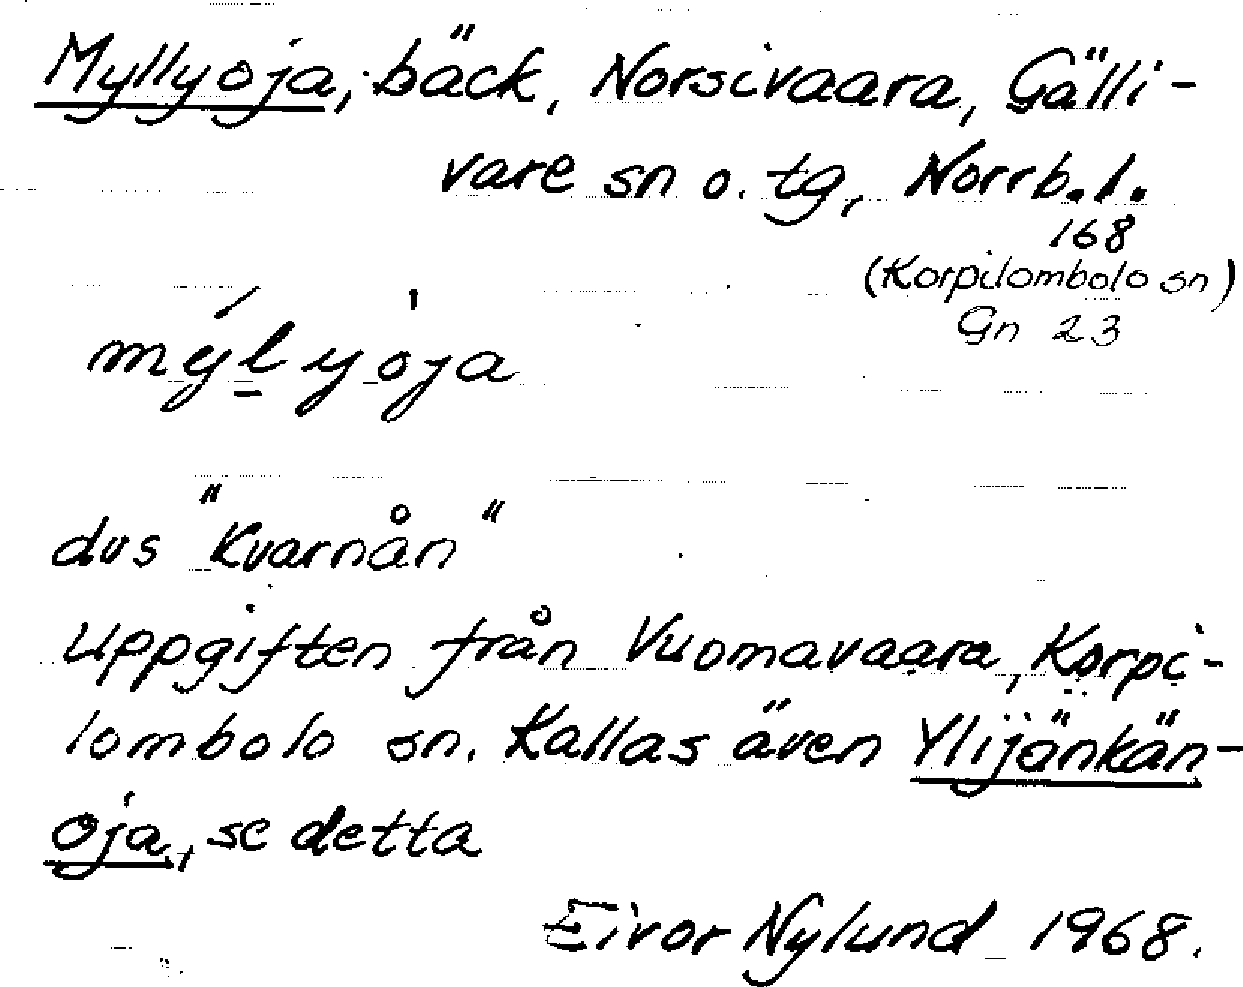 Myllyoja, bäck, Norsivaara, Gälli-
vare sn o. tg, Norrb. l.
168
(Korpilombolo sn)
Gn 23
mýl̲yòja
dvs "Kvarnån"
Uppgiften från Vuomavaara, Korpi-
lombolo sn. Kallas även Ylijänkän-
oja, se detta
Eivor Nylund 1968.